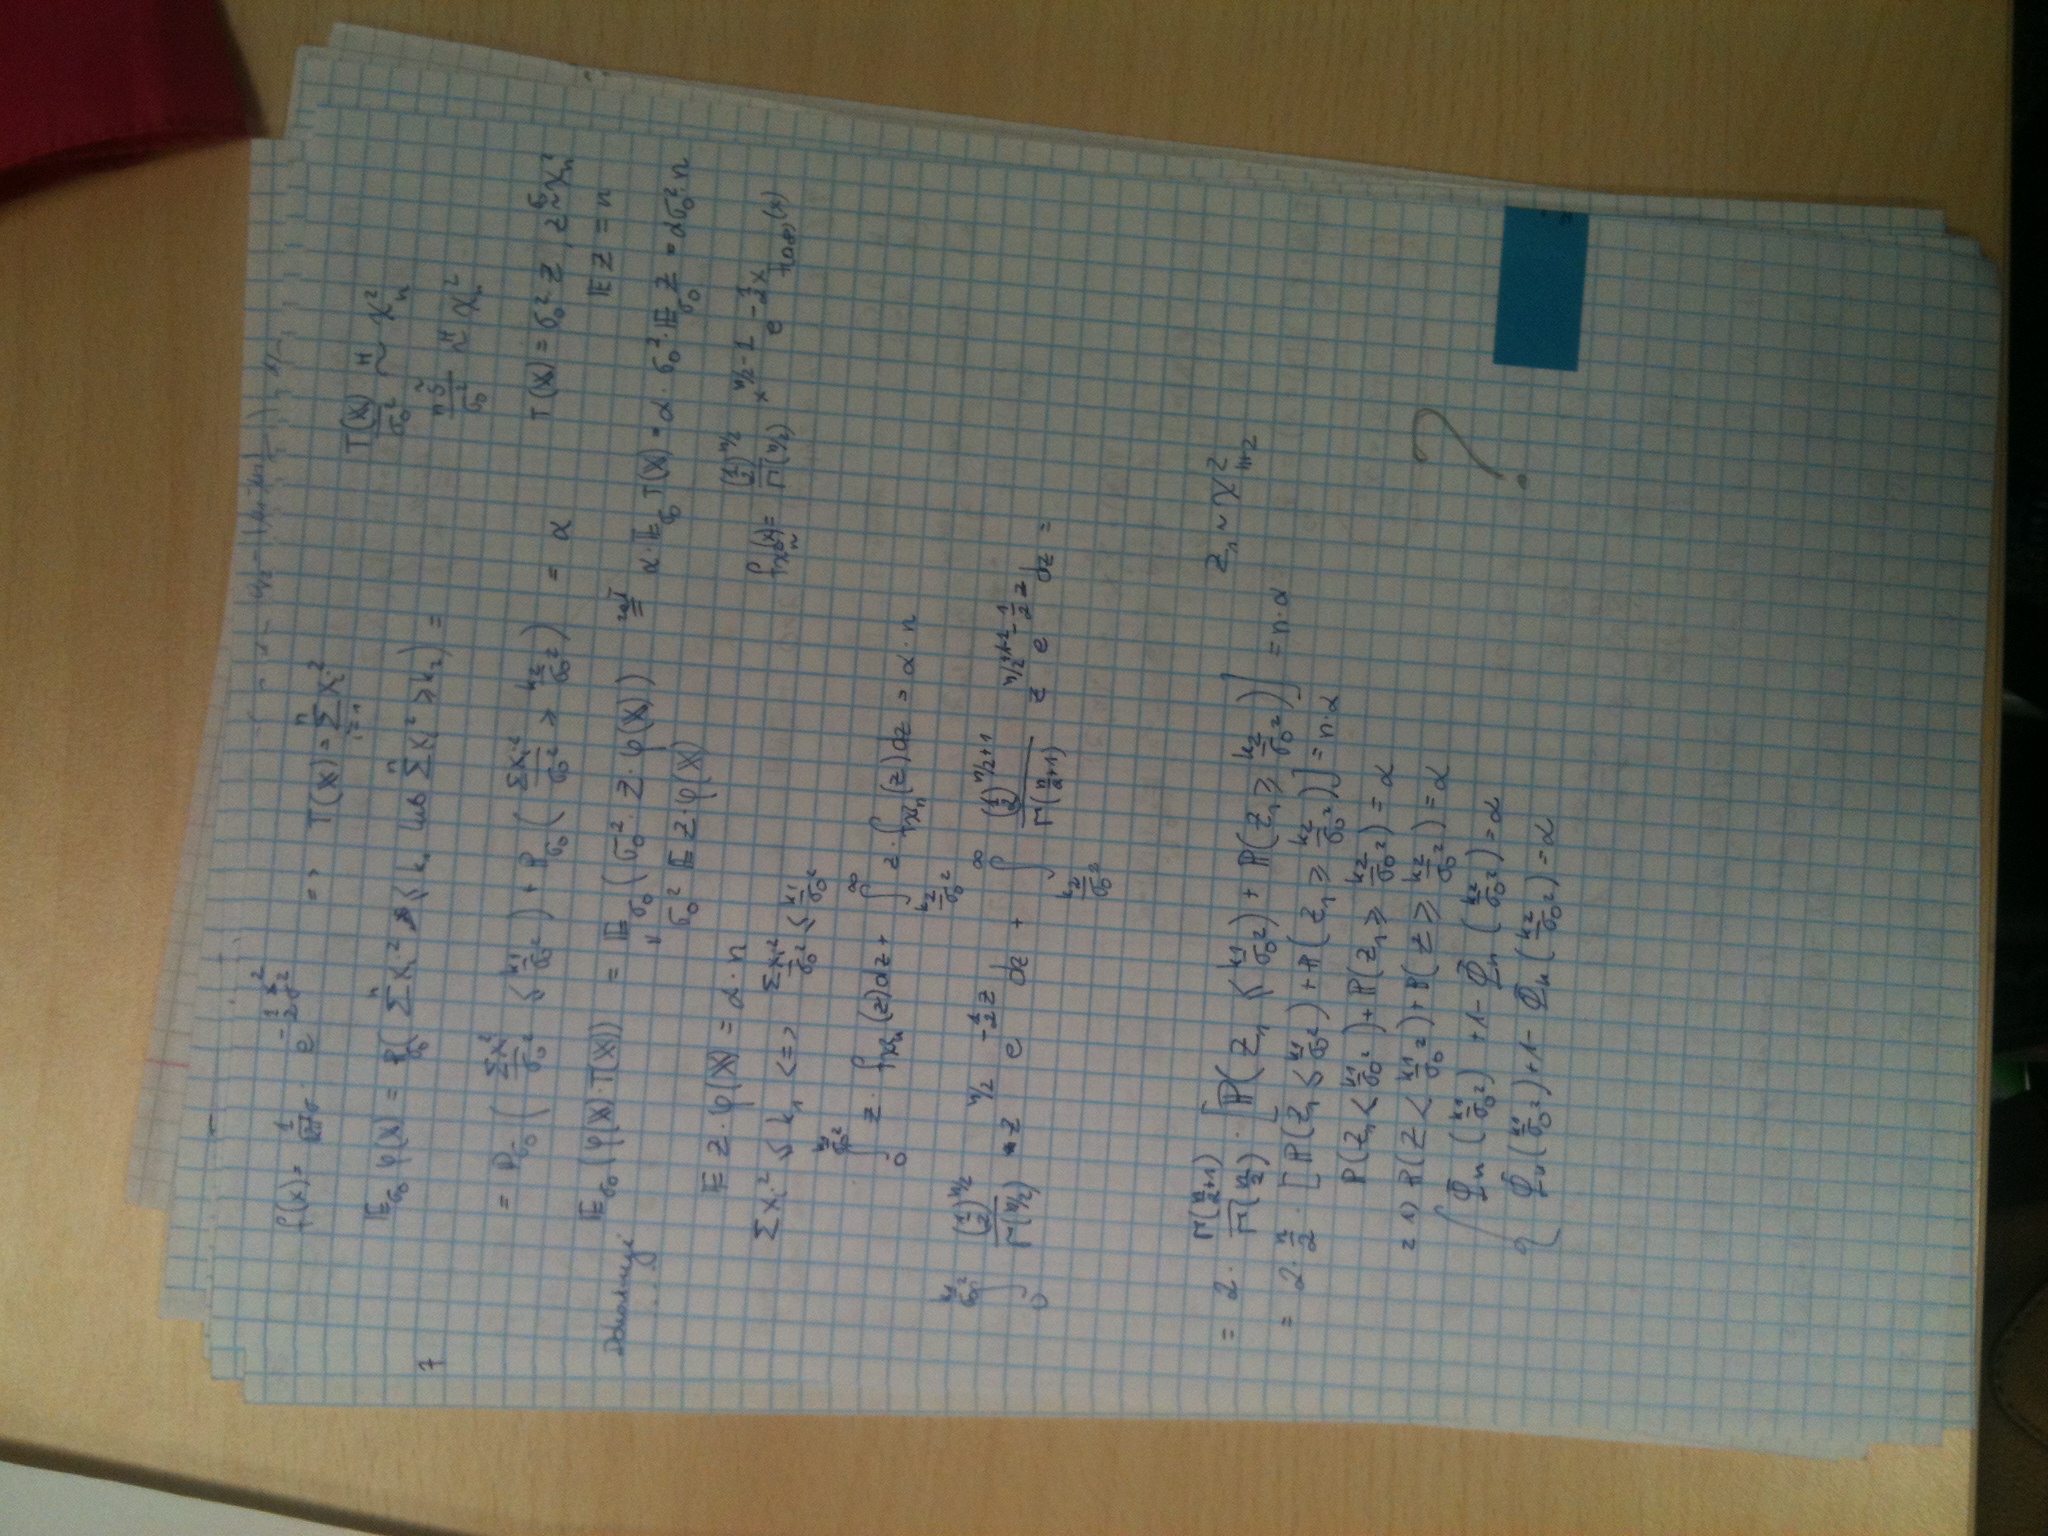 f(x) = \frac{1}{\sqrt{2\pi}\sigma} \cdot e^{-\frac{1}{2}\frac{x^2}{\sigma^2}} => T(X) = \sum_{i=1}^{n} X_i^2
\frac{T(X)}{\sigma_0^2} \overset{H}{\sim} \chi_n^2
E_{\sigma_0} φ(X) = P_{\sigma_0}( \sum^n X_i^2 ≤ k_1 lub \sum^n X_i^2 ≥ k_2) =
7
\frac{n S^2}{\sigma_0^2} \overset{H}{\sim} \chi_n^2
= P_{\sigma_0} ( \frac{ΣX_i^2}{\sigma_0^2} ≤ \frac{k_1}{\sigma_0^2} ) + P_{\sigma_0} ( \frac{ΣX_i^2}{\sigma_0^2} ≥ \frac{k_2}{\sigma_0^2} ) = α
T(X) = σ_0^2 · Z , Z \overset{σ_0}{\sim} χ_n^2
E Z = n
E_{\sigma_0} (φ(X) · T(X)) = E_{\sigma_0} (σ_0^2 · Z · φ(X)) = α · E_{\sigma_0} T(X) = α · σ_0^2 · E_{\sigma_0} Z = α σ_0^2 · n
σ_0^2 E Z · φ(X)
E Z · φ(X) = α · n
f_{χ_n^2}(x) = \frac{(\frac{1}{2})^{n/2}}{Γ(n/2)} x^{n/2 - 1} e^{-\frac{1}{2}x} 1_{(0,∞)}(x)
Σ X_i^2 ≤ k_1 <=> \frac{ΣX_i^2}{σ_0^2} ≤ \frac{k_1}{σ_0^2}
\int_0^{\frac{k_1}{σ_0^2}} z · f_{χ_n^2}(z) dz + \int_{\frac{k_2}{σ_0^2}}^{∞} z · f_{χ_n^2}(z) dz = α · n
\int_0^{\frac{k_1}{σ_0^2}} \frac{(\frac{1}{2})^{n/2}}{Γ(n/2)} · z^{n/2} e^{-\frac{1}{2}z} dz + \int_{\frac{k_2}{σ_0^2}}^{∞} \frac{(\frac{1}{2})^{n/2+1}}{Γ(\frac{n}{2}+1)} z^{n/2+1-1} e^{-\frac{1}{2}z} dz =
= 2 · \frac{Γ(\frac{n}{2}+1)}{Γ(\frac{n}{2})} · [ P( Z_1 ≤ \frac{k_1}{σ_0^2} ) + P( Z_1 ≥ \frac{k_2}{σ_0^2} ) ] = n · α
Z_1 ~ χ_{n+2}^2
= 2 · \frac{n}{2} · [ P(Z_1 ≤ \frac{k_1}{σ_0^2}) + P( Z_1 ≥ \frac{k_2}{σ_0^2}) ] = n · α
P(Z_1 < \frac{k_1}{σ_0^2}) + P(Z_1 ≥ \frac{k_2}{σ_0^2}) = α
z 1) P(Z < \frac{k_1}{σ_0^2}) + P( Z ≥ \frac{k_2}{σ_0^2}) = α
Φ_n (\frac{k_1}{σ_0^2}) + 1 - Φ_n (\frac{k_2}{σ_0^2}) = α
Φ_n (\frac{k_1}{σ_0^2}) + 1 - Φ_n (\frac{k_2}{σ_0^2}) = α
?